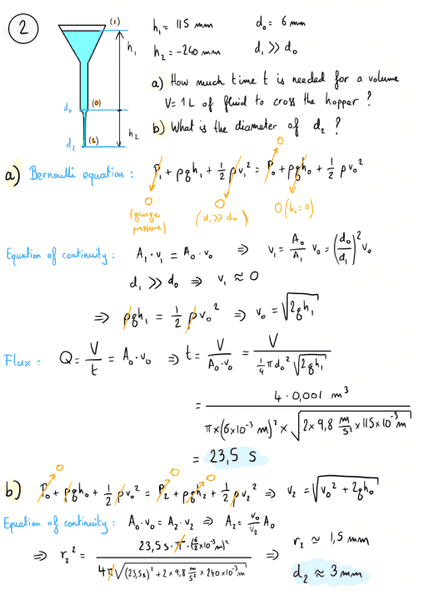 2
(1)
h₁
d₀
(0)
h₂
d₂
(2)
h₁ = 115 mm d₀ = 6 mm
h₂ = -240 mm d₁ >> d₀
a) How much time t is needed for a volume
V = 1 L of fluid to cross the hopper ?
b) What is the diameter of d₂ ?
a) Bernoulli equation : P₁ + ρgh₁ + 1/2 ρv₁² = P₀ + ρgh₀ + 1/2 ρv₀²
0 (gauge pressure) 0 (d₁ >> d₀) 0 0 (h₀ = 0)
Equation of continuity : A₁ · v₁ = A₀ · v₀ ⇒ v₁ = A₀/A₁ v₀ = (d₀/d₁)² v₀
d₁ >> d₀ ⇒ v₁ ≈ 0
⇒ ρgh₁ = 1/2 ρv₀² ⇒ v₀ = √(2gh₁)
Flux : Q = V/t = A₀ · v₀ ⇒ t = V/(A₀ · v₀) = V/(1/4 π d₀² √(2gh₁))
= 4 · 0,001 m³/(π × (6×10⁻³ m)² × √(2 × 9,8 m/s² × 115×10⁻³ m))
= 23,5 s
b) P₀ + ρgh₀ + 1/2 ρv₀² = P₂ + ρgh₂ + 1/2 ρv₂² ⇒ v₂ = √(v₀² + 2gh₀)
0 0 0
Equation of continuity : A₀ · v₀ = A₂ · v₂ ⇒ A₂ = v₀/v₂ A₀
⇒ r₂² = 23,5 s · π · (6/2 ×10⁻³ m)²/(4π √((23,5 s)² + 2 × 9,8 m/s² × 240×10⁻³ m)) ⇒ r₂ ≈ 1,5 mm
d₂ ≈ 3 mm